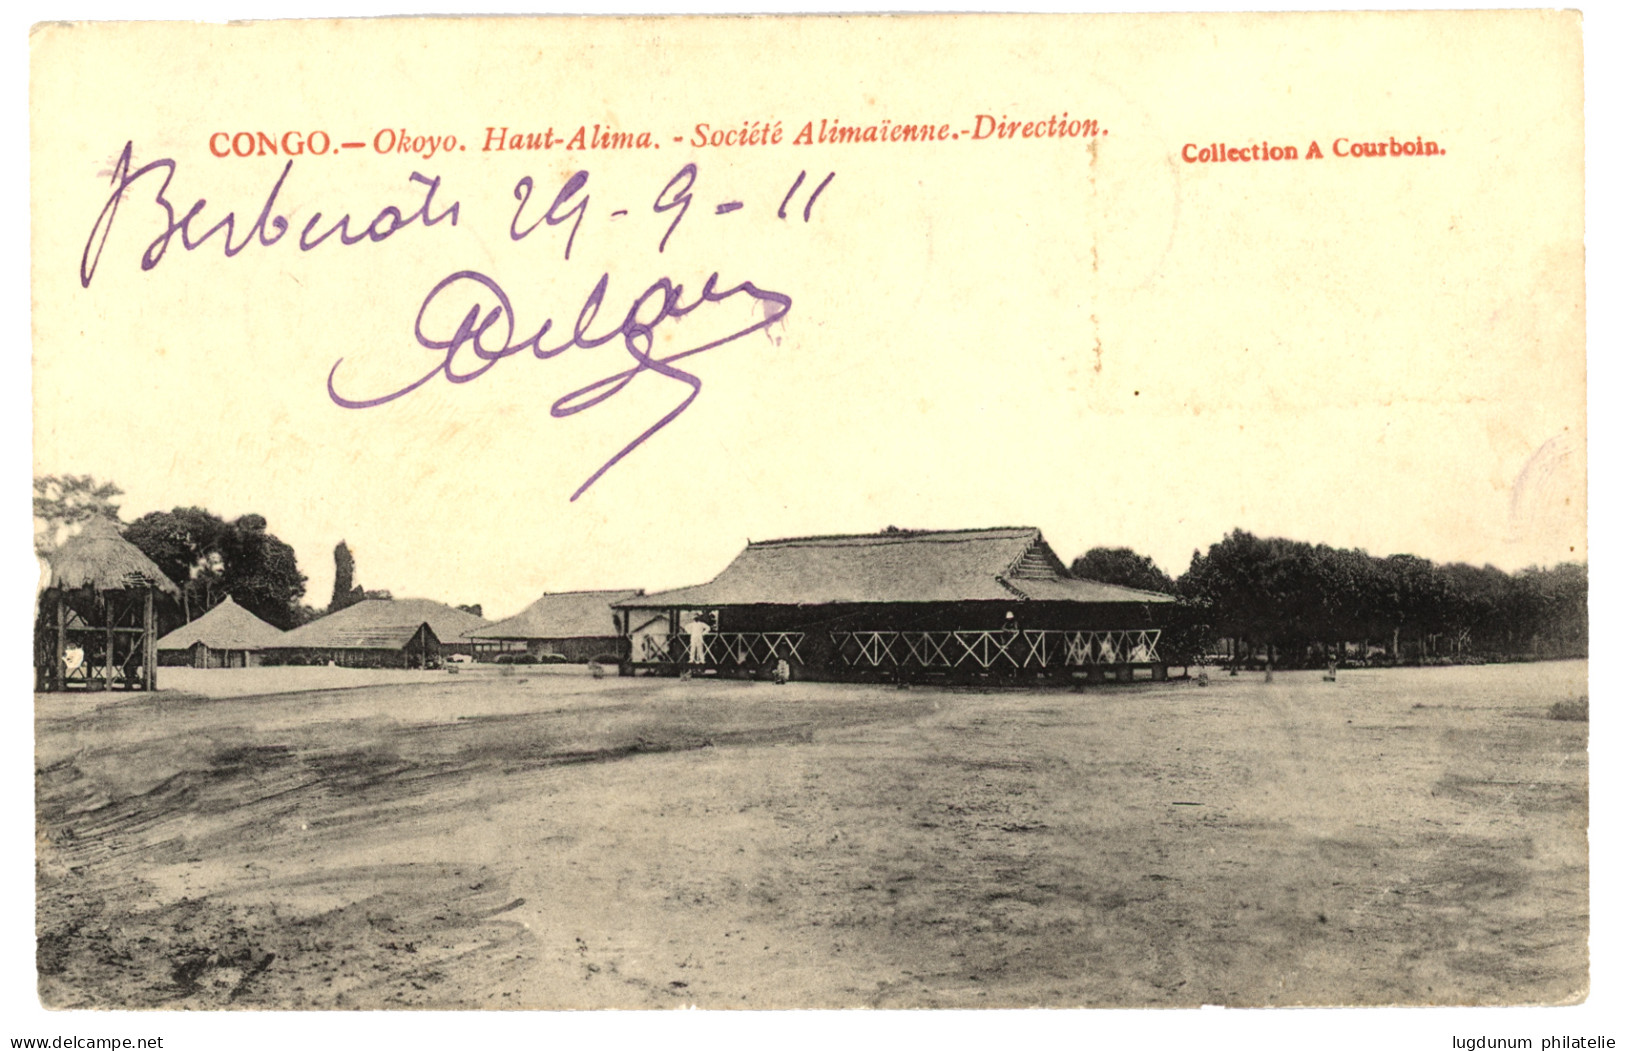 CONGO.— Okoyo. Haut-Alima. - Société Alimaïenne.-Direction.
Collection A Courboin.
Berberati 29-9-11
delcampe.net
lugdunum philatelie